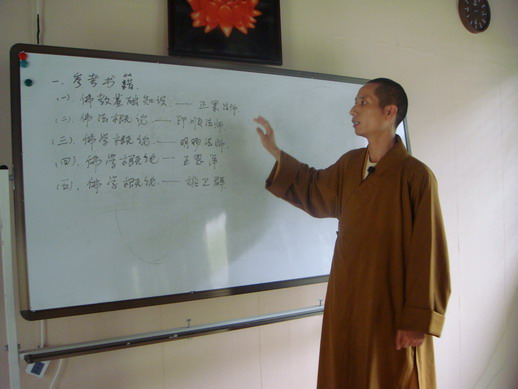 一、参考书籍
(一)、佛教基础知识 —— 正果法师
(二)、佛法概论 —— 印顺法师
(三)、佛学概论 —— 明旸法师
(四)、佛学概论 —— 王恩洋
(五)、佛学概论 —— 姚卫群